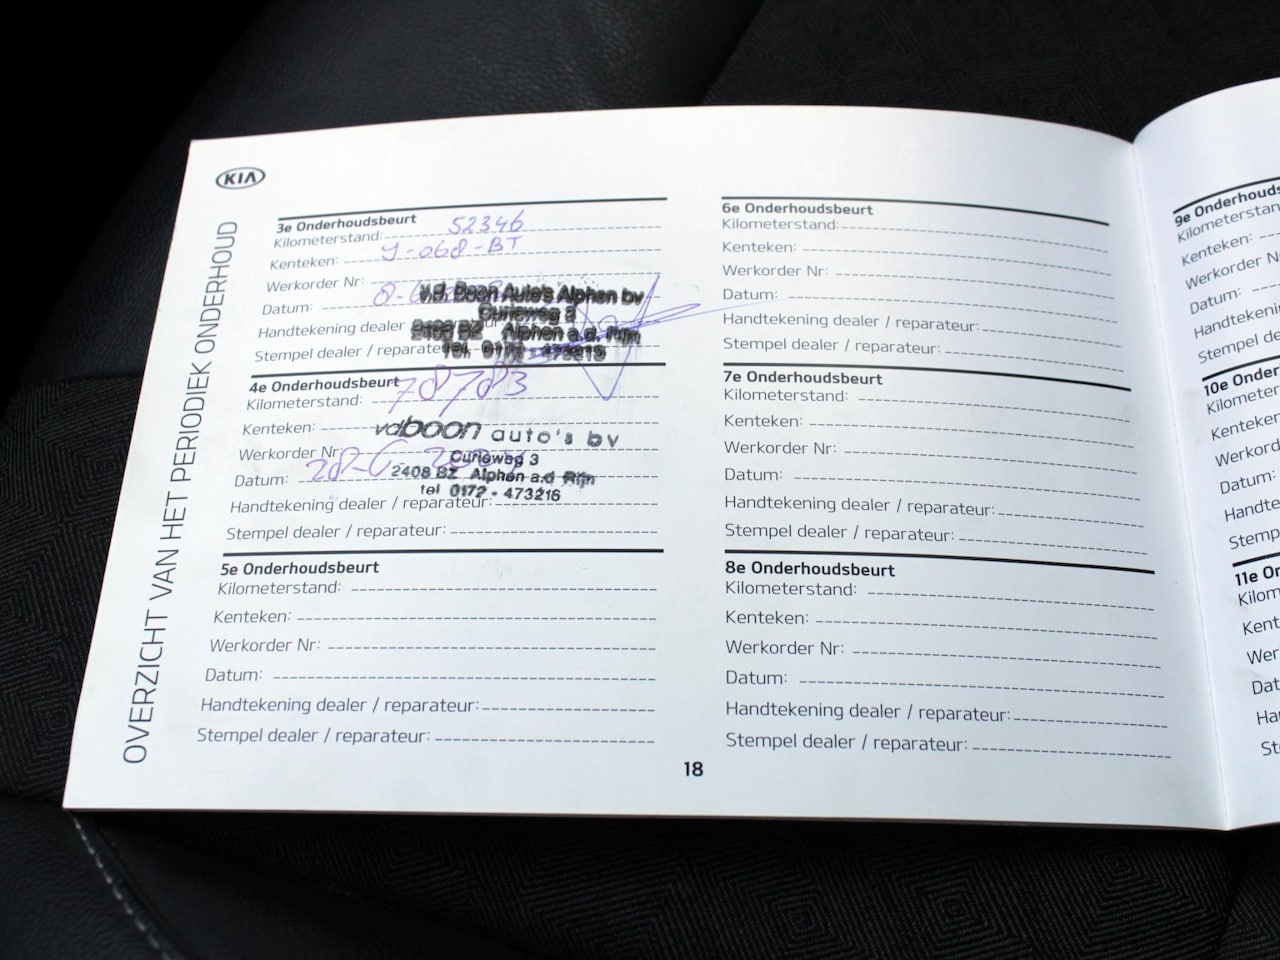 KIA
OVERZICHT VAN HET PERIODIEK ONDERHOUD
3e Onderhoudsbeurt
Kilometerstand: 52346
Kenteken:
Werkorder Nr:
Datum:
v.d. Boon Auto's Alphen bv
Curieweg 3
Handtekening dealer
2408 BZ Alphen a.d. Rijn
Stempel dealer / reparate
Tel. 0172 -
4e Onderhoudsbeurt
Kilometerstand: 78783
Kenteken:
vdboon auto's bv
Werkorder Nr
Curieweg 3
Datum:
2408 BZ Alphen a.d Rijn
tel 0172 - 473216
Handtekening dealer / reparateur:
Stempel dealer / reparateur:
5e Onderhoudsbeurt
Kilometerstand:
Kenteken:
Werkorder Nr:
Datum:
Handtekening dealer / reparateur:
Stempel dealer / reparateur:
6e Onderhoudsbeurt
Kilometerstand:
Kenteken:
Werkorder Nr:
Datum:
Handtekening dealer / reparateur:
Stempel dealer / reparateur:
7e Onderhoudsbeurt
Kilometerstand:
Kenteken:
Werkorder Nr:
Datum:
Handtekening dealer / reparateur:
Stempel dealer / reparateur:
8e Onderhoudsbeurt
Kilometerstand:
Kenteken:
Werkorder Nr:
Datum:
Handtekening dealer / reparateur:
Stempel dealer / reparateur:
18
9e Onderhouds
Kilometerstan
Kenteken:
Werkorder N
Datum:
Handtekeni
Stempel de
10e Onder
Kilometer
Kenteken
Werkord
Datum:
Handte
Stemp
11e Or
Kilom
Kent
Wer
Dat
Ha
St